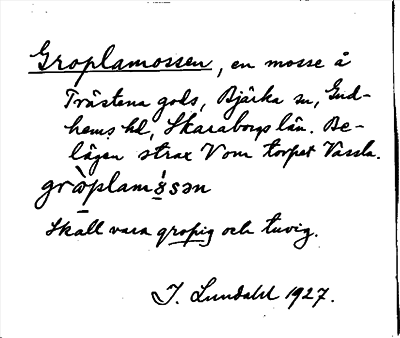 Groplamossen, en mosse å
Trästena gods, Bjärka sn, Gud-
hems hd, Skaraborgs län. Be-
lägen strax V om torpet Vassla.
gròplamósən
Skall vara gropig och tuvig.
I. Lundahl 1927.